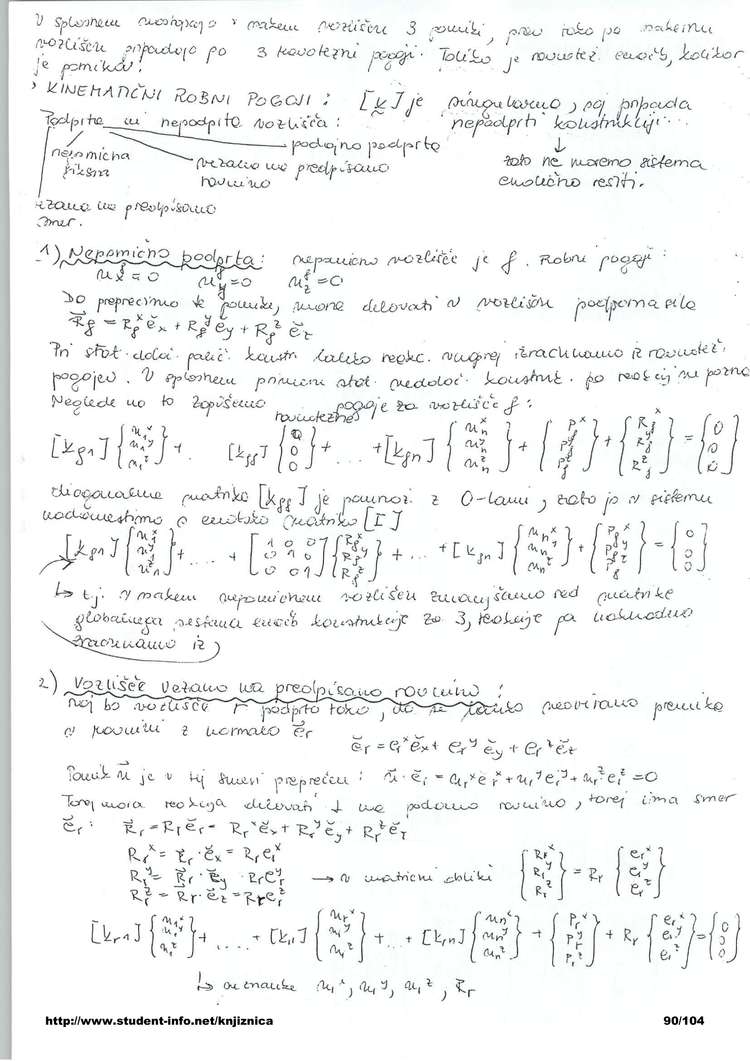 V splošnem nastopajo v vsakem vozlišču 3 pomiki, prav tako pa vsakemu
vozlišču pripadajo po 3 ravotežni pogoji. Toliko je ravnotež. enačb, kolikor
je pomikov!
KINEMATIČNI ROBNI POGOJI: [K] je singularno, saj pripada
Podprta in nepodprta vozlišča: nepodprti konstrukciji...
podajno podprto
↓
nepomična
fiksna
vezano na predpisano
ravnino
zato ne moremo sistema
enolično rešiti.
vezana na predpisano
smer.
1) Nepomično podprta: nepomično vozlišče je f. Robni pogoji:
u_f^x = 0 u_f^y = 0 u_f^z = 0
Da preprečimo te pomike, mora delovati v vozlišču podporna sila
R_f = R_f^x e_x + R_f^y e_y + R_f^z e_z
Pri stat. določ. palič. konstr. lahko reakc. vnaprej izračunamo iz ravnotež.
pogojev. V splošnem primeru stat. nedoloč. konstruk. pa reakcij ne pozna
Neglede na to zapišemo ravnotežne pogoje za vozlišče f:
[K_f1] {u_1^x u_1^y u_1^z} + .. [K_ff] {0 0 0} + ... + [K_fn] {u_n^x u_n^y u_n^z} + {P_f^x P_f^y P_f^z} + {R_f^x R_f^y R_f^z} = {0 0 0}
diagonalne matrike [K_ff] je pomnož. z 0-lami, zato jo v sistemu
nadomestimo z enotsko matriko [I]
[K_f1] {u_1^x u_1^y u_1^z} + ... + [1 0 0 0 1 0 0 0 1] {R_f^x R_f^y R_f^z} + ... + [K_fn] {u_n^x u_n^y u_n^z} + {P_f^x P_f^y P_f^z} = {0 0 0}
↳ t.j. v vsakem nepomičnem vozlišču zmanjšamo red matrike
globalnega sestava enačb konstrukcije za 3, reakcije pa naknadno
izračunamo iz
2) Vozlišče vezano na predpisano ravnino:
Naj bo vozlišče r podprto tako, da se lahko neovirano premika
v ravnini z normalo e_r
e_r = e_r^x e_x + e_r^y e_y + e_r^z e_z
Pomik u je v tej smeri preprečen: u · e_r = u_r^x e_r^x + u_r^y e_r^y + u_r^z e_r^z = 0
Torej mora reakcija delovati ⊥ na podano ravnino, torej ima smer
e_r: R_r = R_r e_r = R_r^x e_x + R_r^y e_y + R_r^z e_z
R_r^x = R_r · e_x = R_r e_r^x
R_r^y = R_r · e_y = R_r e_r^y → v matrični obliki {R_r^x R_r^y R_r^z} = R_r {e_r^x e_r^y e_r^z}
R_r^z = R_r · e_z = R_r e_r^z
[K_r1] {u_1^x u_1^y u_1^z} + .... + [K_rr] {u_r^x u_r^y u_r^z} + ... + [K_rn] {u_n^x u_n^y u_n^z} + {P_r^x P_r^y P_r^z} + R_r {e_r^x e_r^y e_r^z} = {0 0 0}
u_r^x, u_r^y, u_r^z, R_r
http://www.student-info.net/knjiznica 90/104